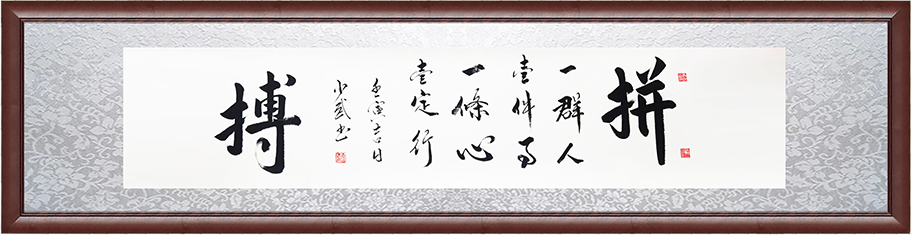 拼
一群人
壹件事
一條心
壹定行
搏
壬寅吉日
小武书